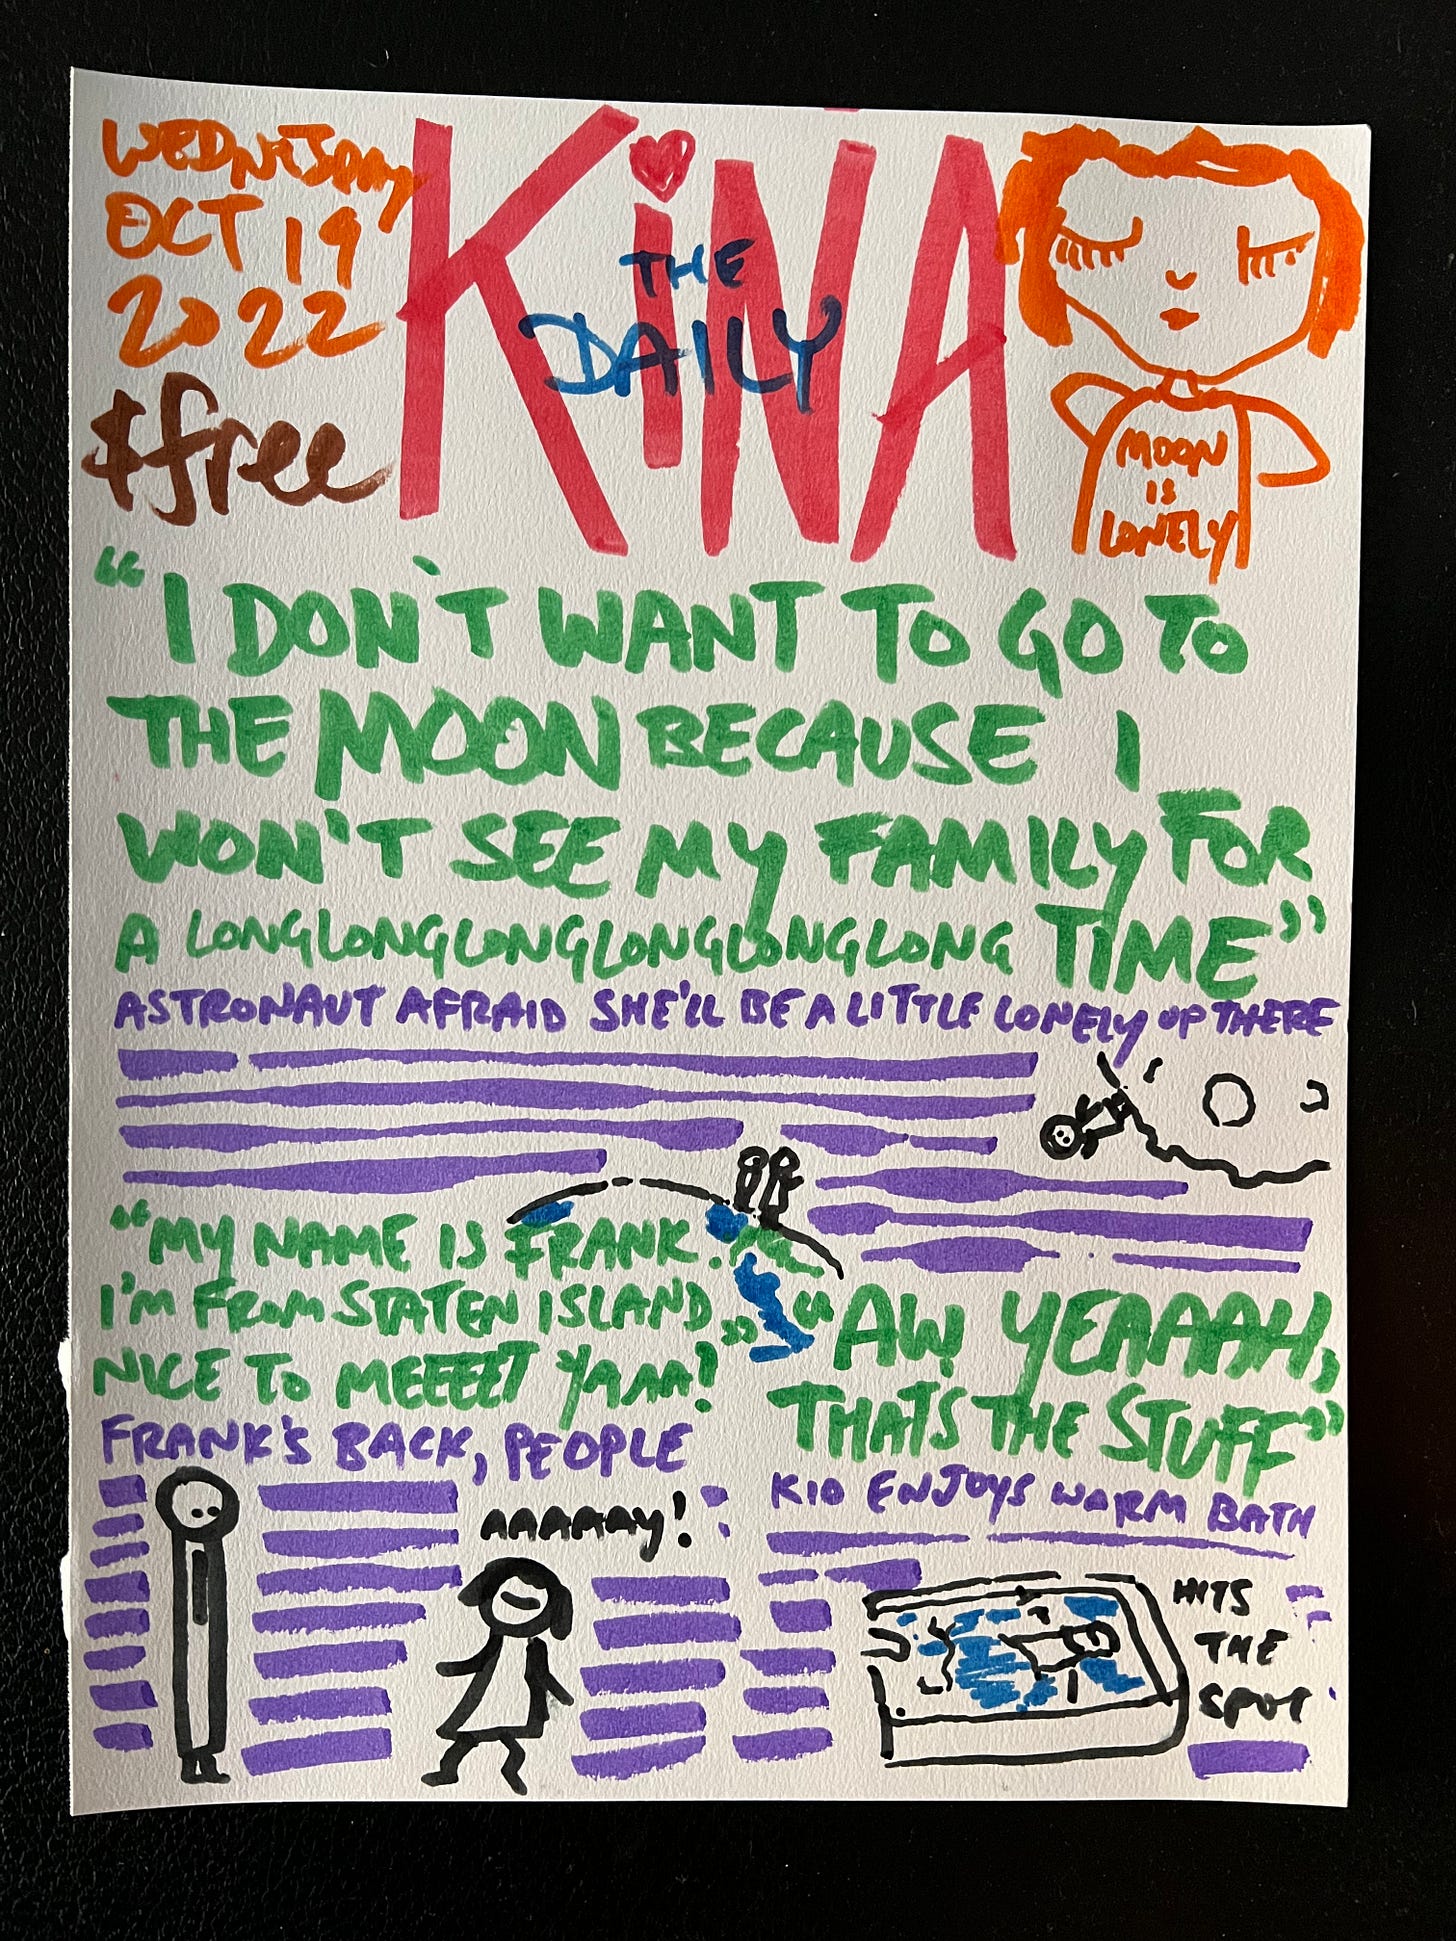 WEDNESDAY
OCT 19
2022
$free
THE
DAILY
KiNA
MOON
IS
LONELY
"I DON'T WANT TO GO TO
THE MOON BECAUSE I
WON'T SEE MY FAMILY FOR
A LONGLONGLONGLONGLONGLONG TIME"
ASTRONAUT AFRAID SHE'LL BE A LITTLE LONELY UP THERE
"MY NAME IS FRANK.
I'M FROM STATEN ISLAND,
NICE TO MEEEET YAAA!"
FRANK'S BACK, PEOPLE
AAAAAAY!
"AW YEAAAH,
THATS THE STUFF"
KID ENJOYS WARM BATH
HITS
THE
SPOT